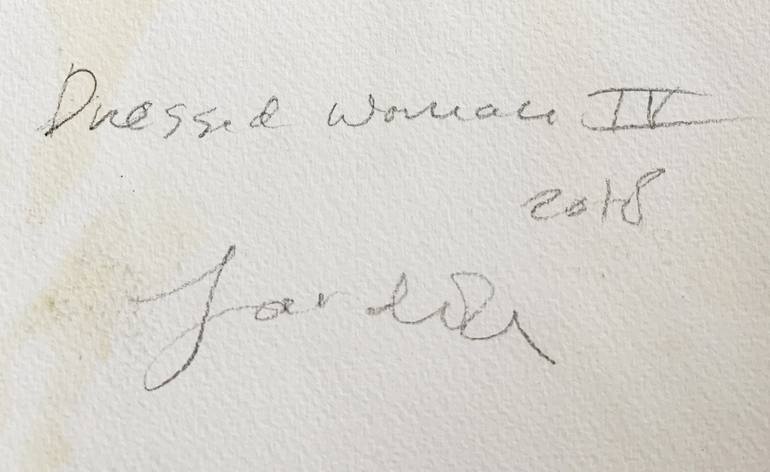 Dressed Woman IV
2018